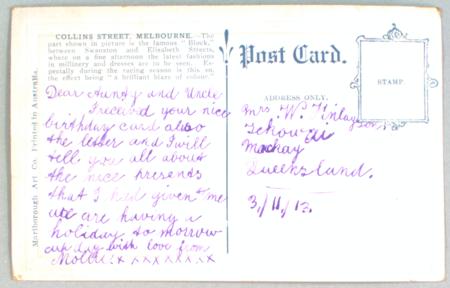 COLLINS STREET, MELBOURNE. —The
part shown in picture is the famous "Block,"
between Swanston and Elizabeth Streets,
where on a fine afternoon the latest fashions
in millinery and dresses are to be seen. Es-
pecially during the racing season is this so,
the effect being "a brilliant blaze of colour."
Dear Aunty and Uncle
I received your nice
birthday card also
the letter and I will
tell you all about
the nice presents
that I had given me
we are having a
holiday to morrow
cup day with love from
Mollie x x x x x x x x
Marlborough Art Co. Printed in Australia.
Post Card.
STAMP.
ADDRESS ONLY.
Mrs. W. Finlayson
Mackay
Queensland.
3/11/13.